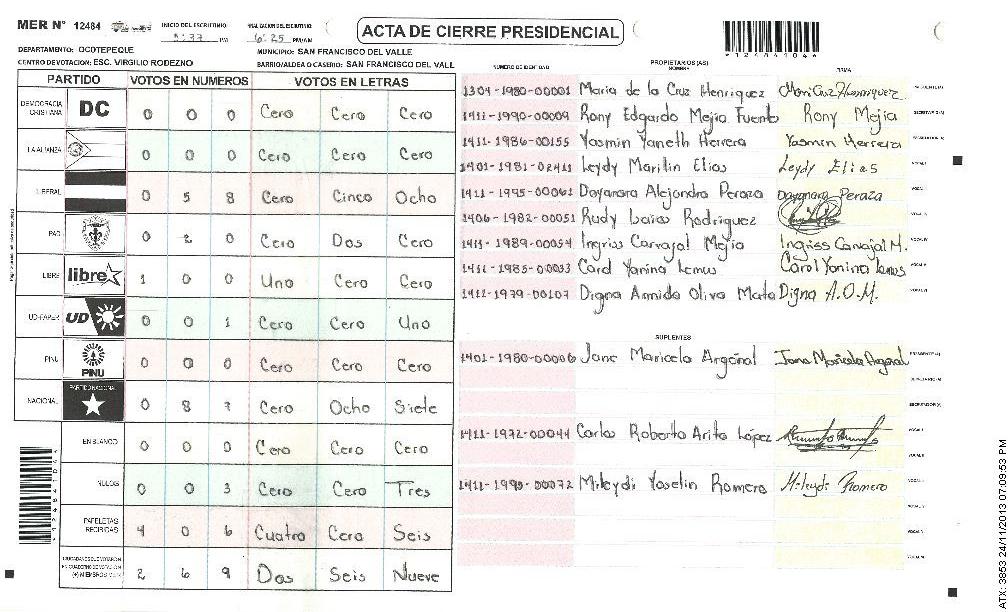 MER N° 12484
INICIO DEL ESCRUTINIO
5:37 PM
FINALIZACION DEL ESCRUTINIO
6:25 PM/AM
ACTA DE CIERRE PRESIDENCIAL
*12484104*
DEPARTAMENTO: OCOTEPEQUE
MUNICIPIO: SAN FRANCISCO DEL VALLE
CENTRO DE VOTACION: ESC. VIRGILIO RODEZNO
BARRIO/ALDEA O CASERIO: SAN FRANCISCO DEL VALL
PARTIDO VOTOS EN NUMEROS VOTOS EN LETRAS
DEMOCRACIA CRISTIANA DC 0 0 0 Cero Cero Cero
LA ALIANZA 0 0 0 Cero Cero Cero
LIBERAL 0 5 8 Cero Cinco Ocho
PAC 0 2 0 Cero Dos Cero
LIBRE libre 1 0 0 Uno Cero Cero
UD-FAPER UD 0 0 1 Cero Cero Uno
PINU PINU 0 0 0 Cero Cero Cero
NACIONAL PARTIDO NACIONAL 0 8 7 Cero Ocho Siete
EN BLANCO 0 0 0 Cero Cero Cero
NULOS 0 0 3 Cero Cero Tres
PAPELETAS RECIBIDAS 4 0 6 Cuatro Cero Seis
CIUDADANOS QUE VOTARON EN CUADERNO DE VOTACION (+) MIEMBROS MER 2 6 9 Dos Seis Nueve
PROPIETARIOS (AS)
NUMERO DE IDENTIDAD NOMBRE FIRMA
1304-1980-00001 Maria de la Cruz Henriquez PRESIDENTE(A)
1411-1990-00009 Rony Edgardo Mejia Fuente Rony Mejia SECRETARIO(A)
1411-1986-00155 Yasmin Yaneth Herrera Yasmin Herrera ESCRUTADOR(A)
1401-1981-02411 Leydy Marilin Elias Leydy Elias VOCAL I
1411-1995-00061 Dayanara Alejandra Peraza Dayanara Peraza VOCAL
1406-1982-00051 Rudy Rodriguez VOCAL
1411-1989-00054 Ingriss Carvajal Mejia Ingriss Carvajal M. VOCAL IV
1411-1985-00033 Carol Yanina Lemus Carol Yanina Lemus VOCAL V
1411-1979-00107 Digna Armida Oliva Mata Digna A.O.M. VOCAL VI
SUPLENTES
1401-1980-00006 Jane Maricela PRESIDENTE(A)
SECRETARIO(A)
ESCRUTADOR(A)
1411-1972-00044 Carlos Roberto Arita López VOCAL I
VOCAL II
1411-1993-00072 Mileydi Yoselin Romero Mileydi Romero VOCAL
VOCAL
VOCAL V
VOCAL VI
ATX: 3853 24/11/2013 07:09:53 PM